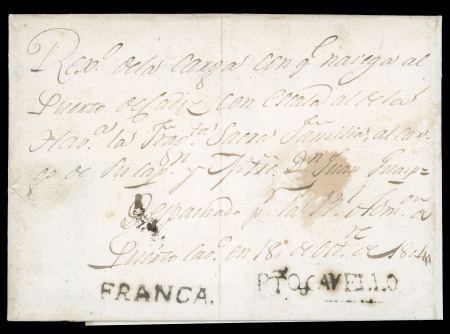 Rexº. dela carga con qᵉ. navega al
Puerto de Cadiz con escala al de la
Havª. la Fragᵗᵃ. Sacra Familia, al car-
go de su capⁿ. y Dⁿ. Juan
Despachado pʳ. la Rˡ. Admᵒⁿ. de
Puerto Cavº. en 18 de de 1804
FRANCA.
PTOCAVELLO